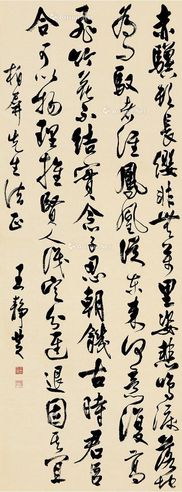 赤驥頓長纓非無萬里姿悲鳴淚落地
為問馭者誰鳳凰從東來何意復高
飛竹花不結實念子忍朝饑古時君臣
合可以物理推賢人識定分進退固其宜
柏屏先生法正 王靜芝